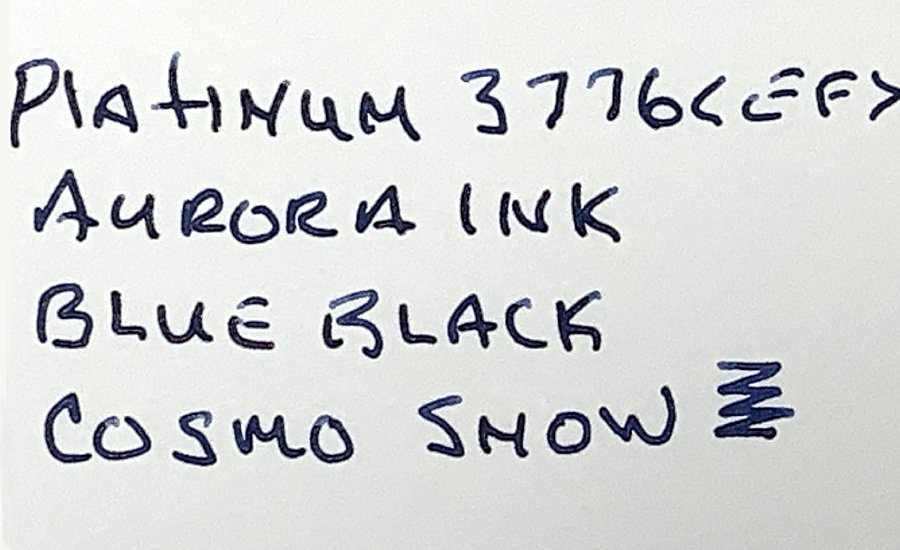 PLATINUM 3776<EF>
AURORA INK
BLUE BLACK
COSMO SNOW